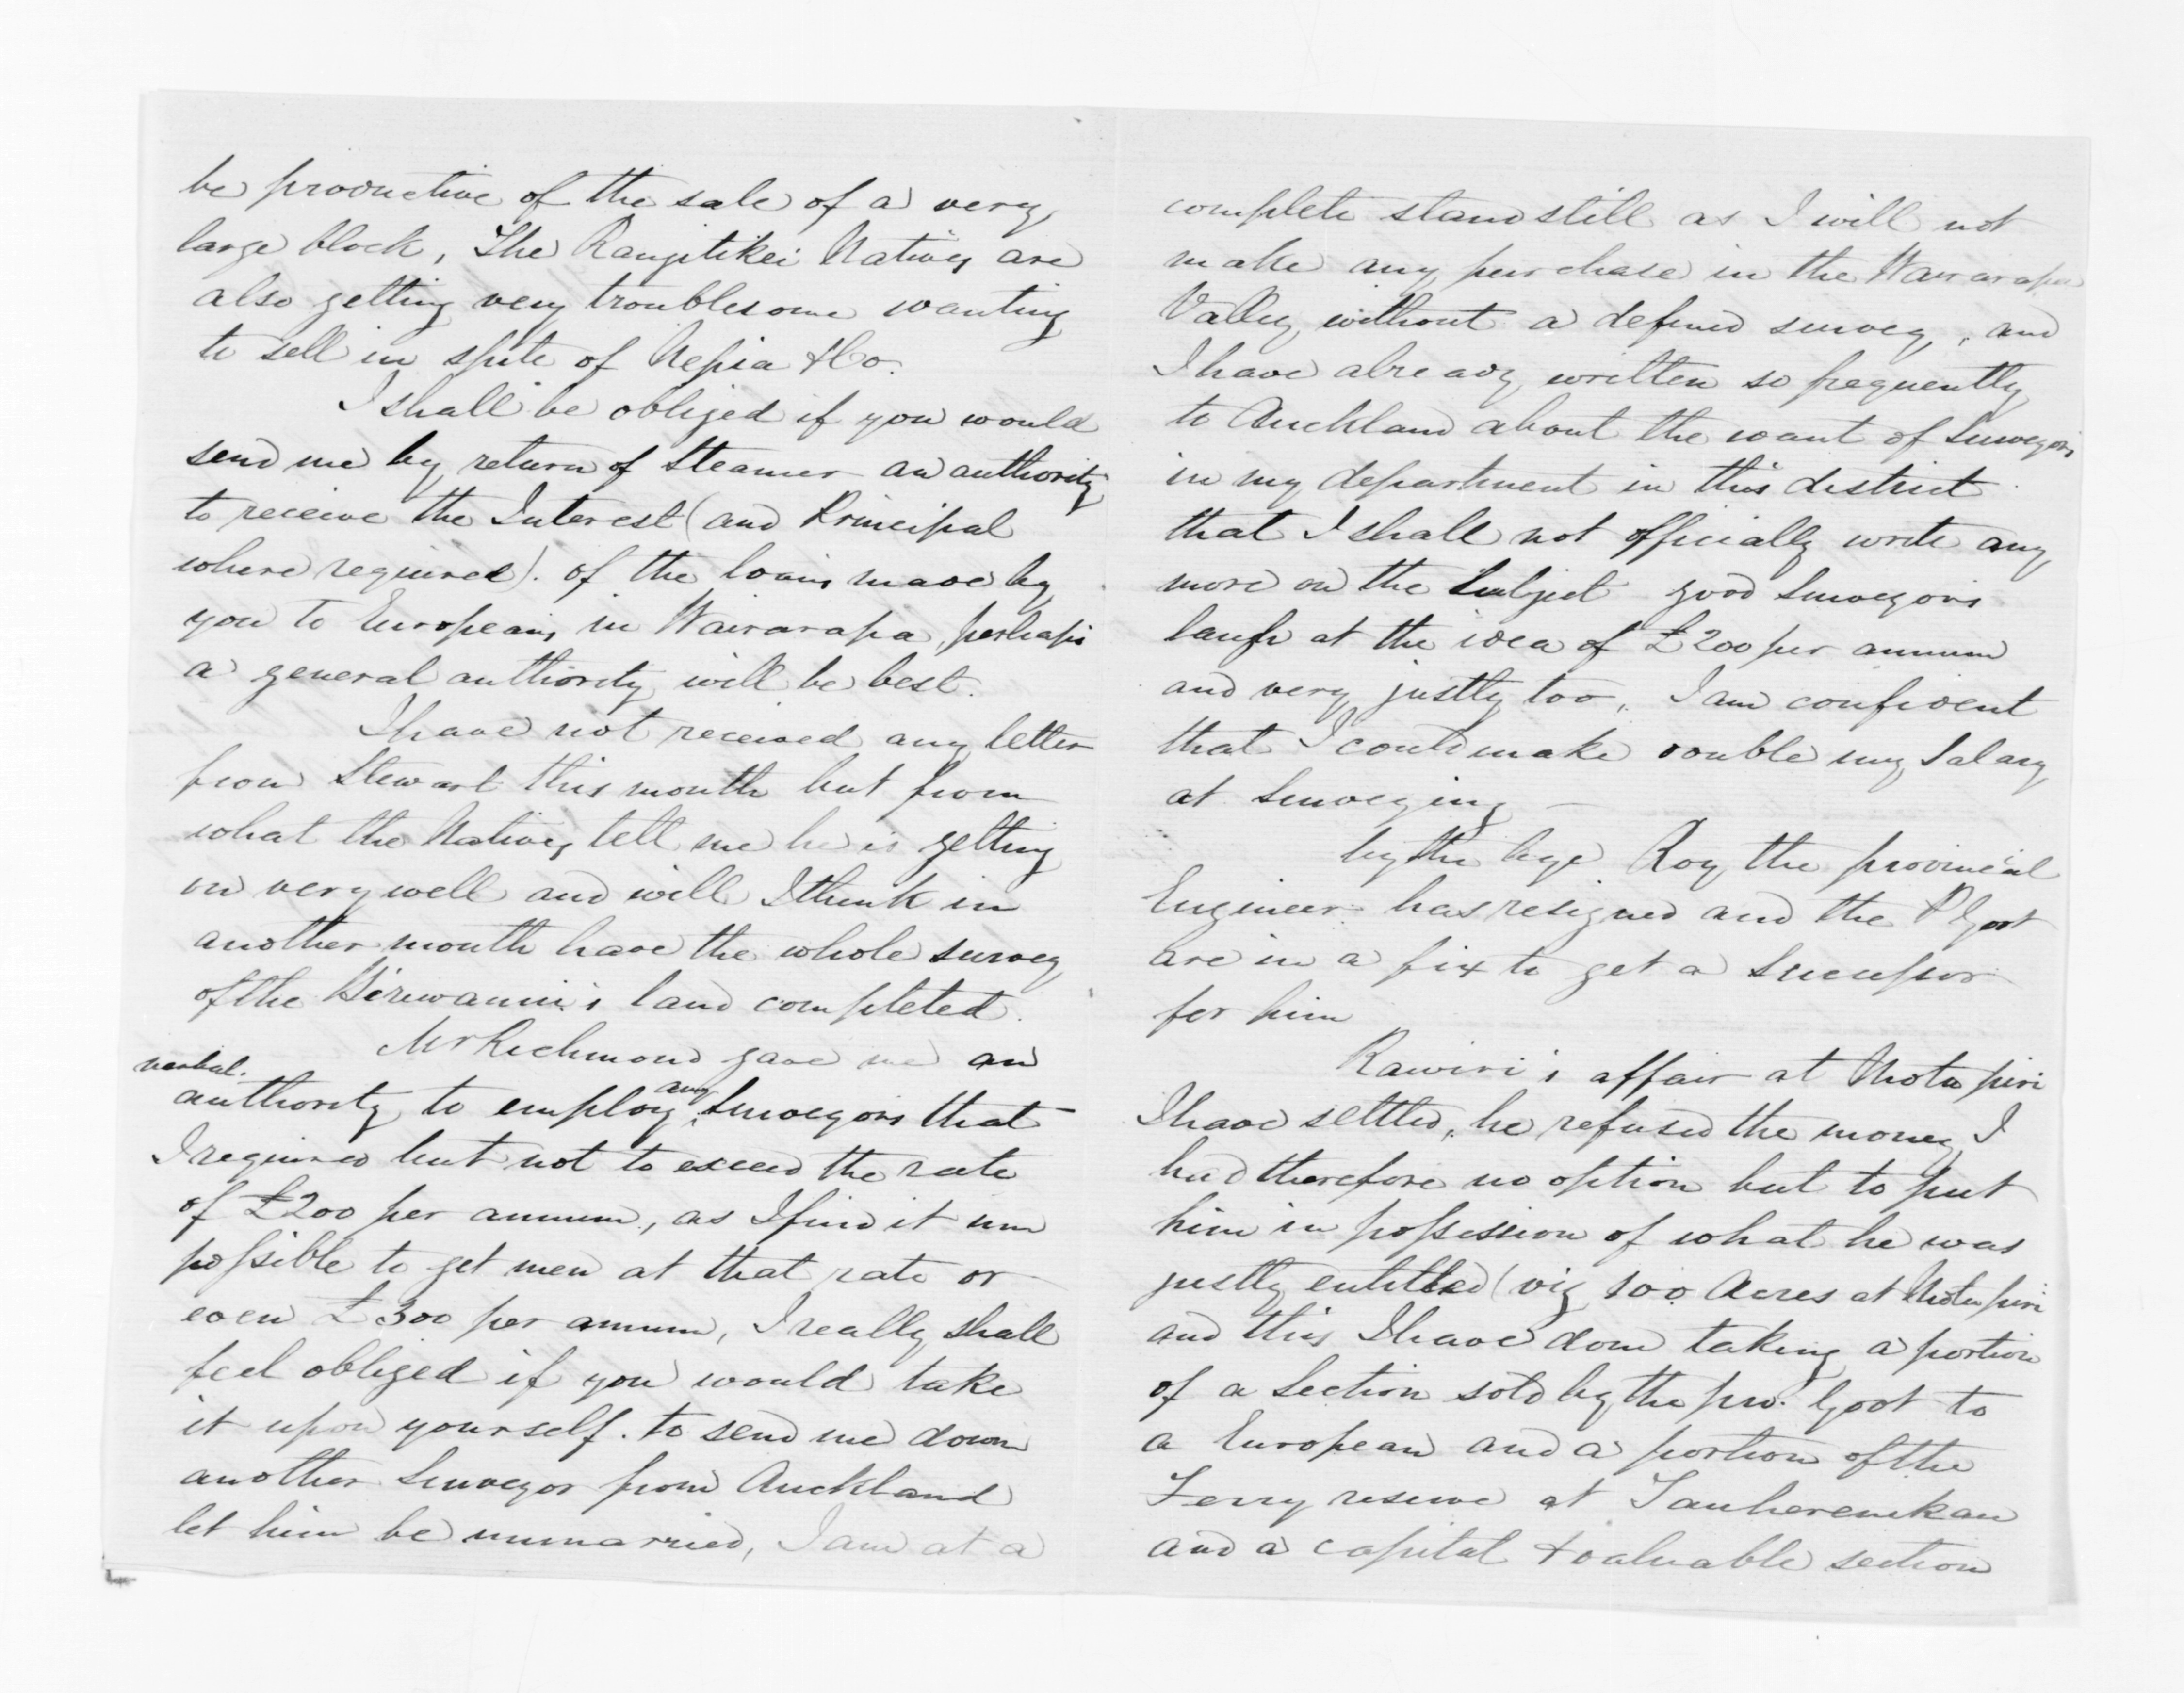 be productive of the sale of a very
large block, The Rangitikei Natives are
also getting very troublesome wanting
to sell in spite of Nepia & Co.
I shall be obliged if you would
send me by return of Steamer an authority
to receive the Interest (and Principal
where required). of the loans made by
you to Europeans in Wairarapa, perhaps
a general authority will be best.
I have not received any letter
from Stewart this month but from
what the Natives tell me he is getting
on very well and will I think in
another month have the whole survey
of the land completed.
Mr Richmond gave me an
verbal.
authority to employ any Surveyors that
I required but not to exceed the rate
of £200 per annum, as I find it im
possible to get men at that rate or
even £300 per annum, I really shall
feel obliged if you would take
it upon yourself. to send me down
another Surveyor from Auckland
let him be unmarried, I am at a
complete stand still as I will not
make any purchase in the Wairarapa
Valley without a defined survey, and
I have already written so frequently
to Auckland about the want of Surveyors
in my department in this district
that I shall not officially write any
more on the Subject good Surveyors
laugh at the idea of £200 per annum
and very justly too, I am confident
that I could make double my Salary
at Surveying —
by the bye Roy the provincial
Engineer has resigned and the P Govt
are in a fix to get a Successor
for him
Rawiri's affair at Motupiri
I have settled, he refused the money I
had therefore no option but to put
him in possession of what he was
justly entitled (viz 100 Acres at Motupiri
and this I have done taking a portion
of a Section sold by the pro. Govt to
a European and a portion of the
Ferry reserve at Tauherenikau
and a capital & valuable section